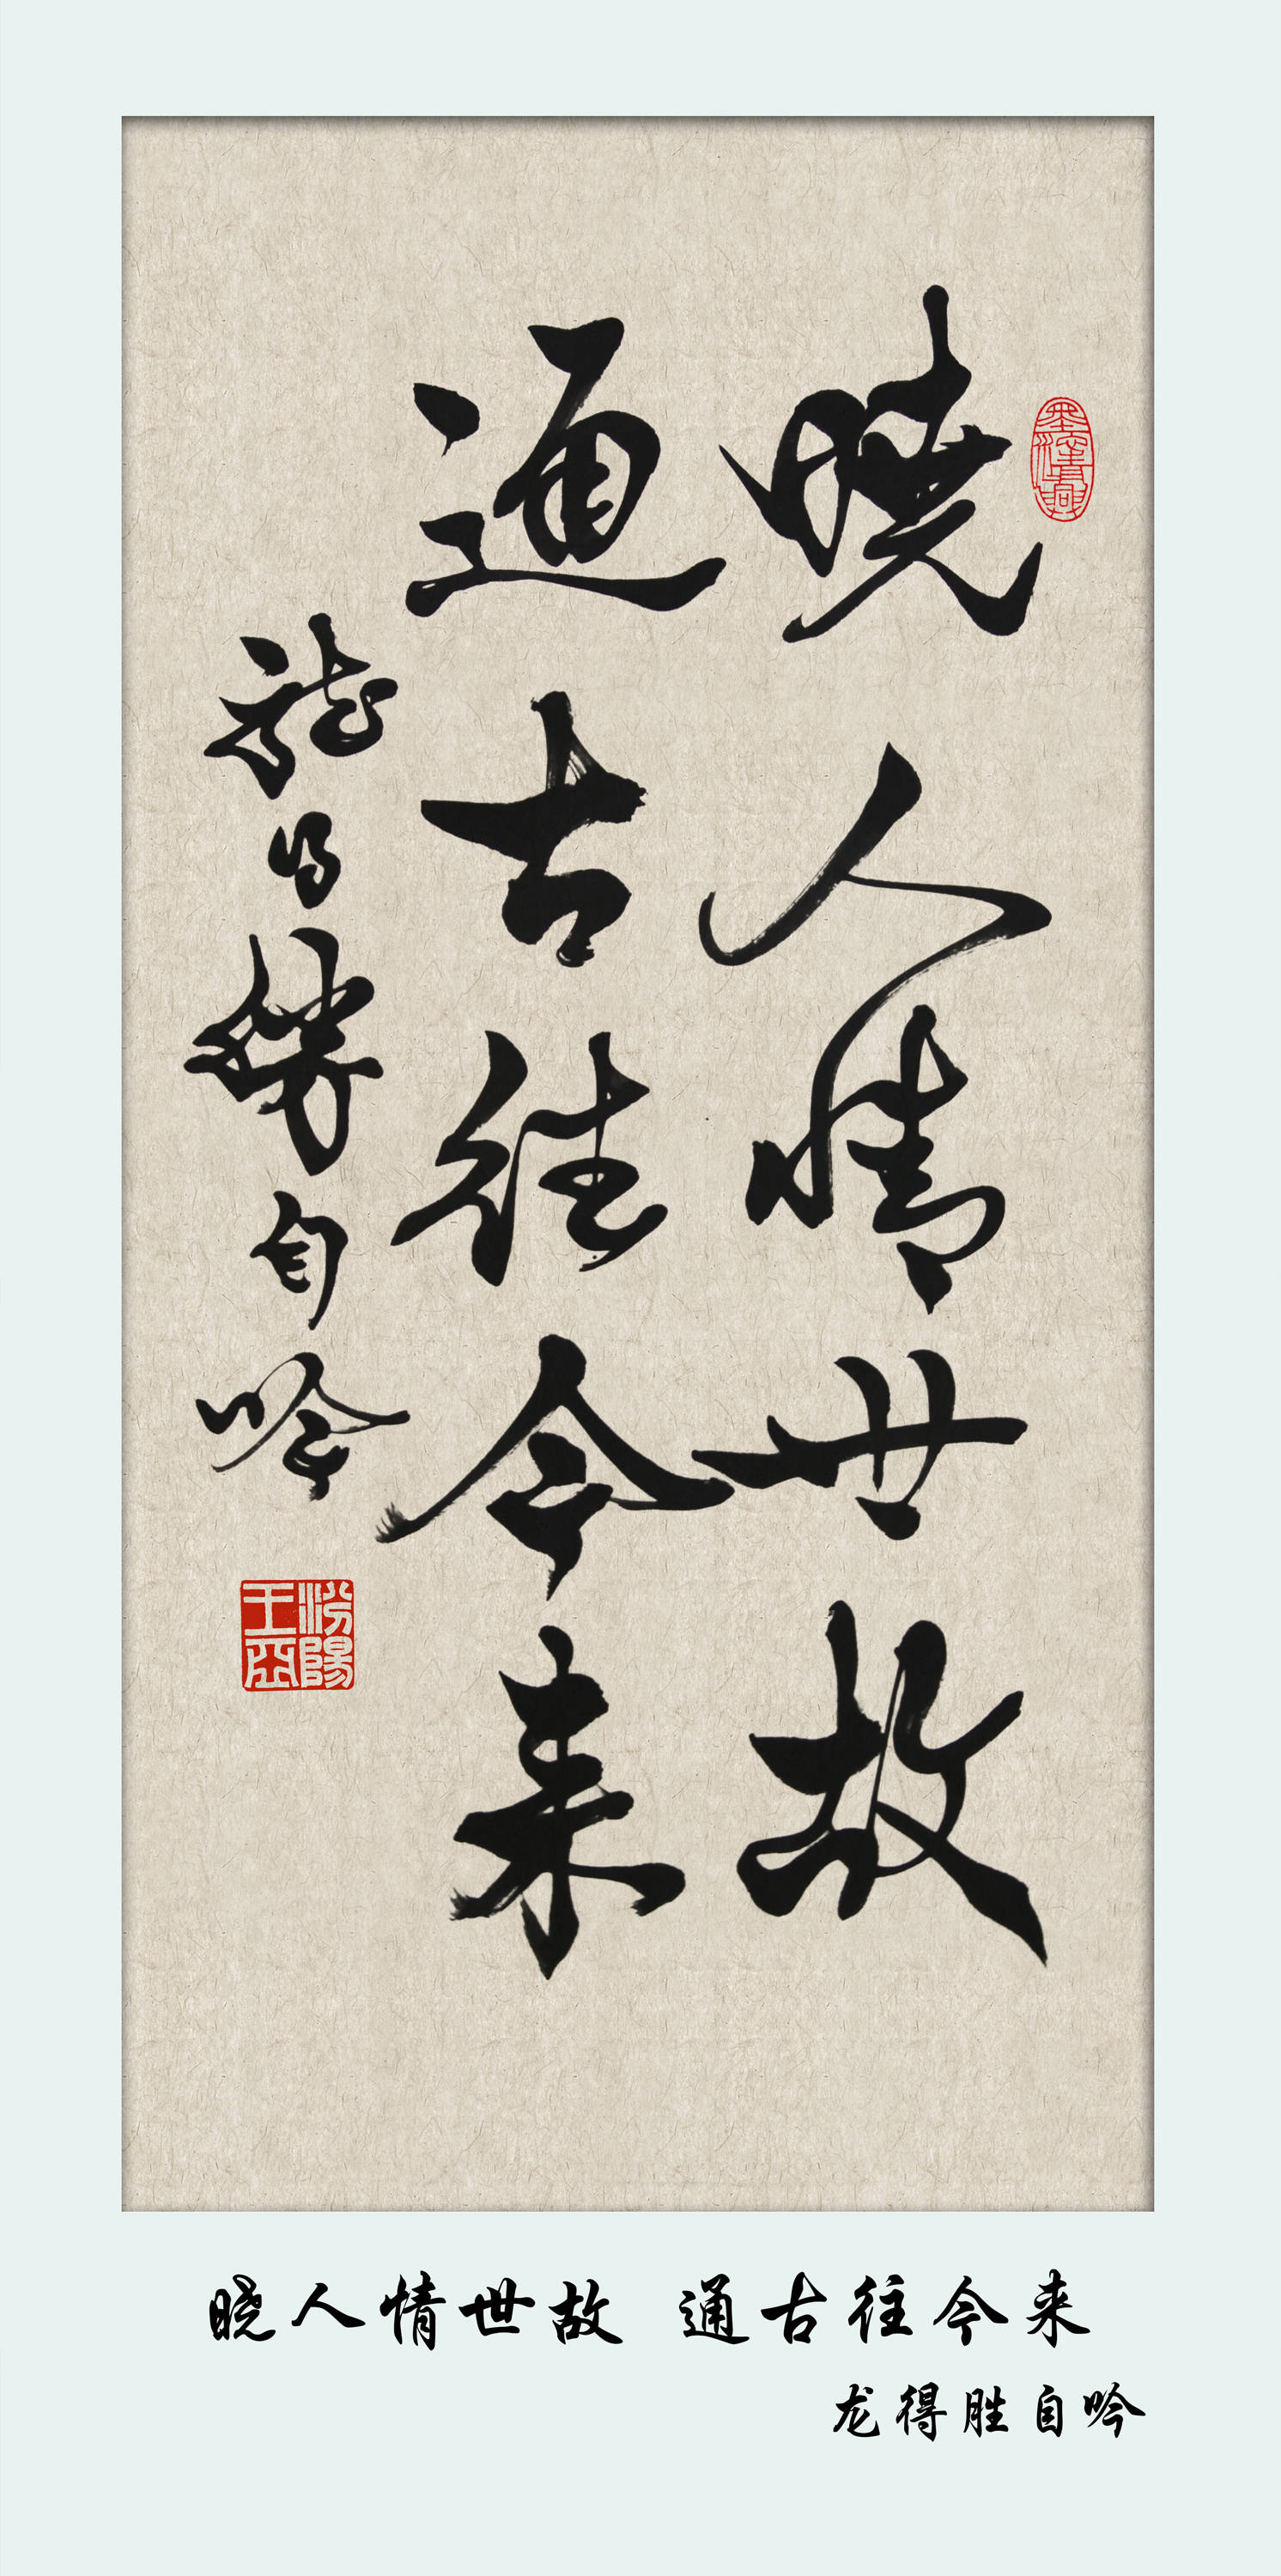 曉人情世故
通古往今来
龍得勝自吟
汾陽
王中
晓人情世故 通古往今来
龙得胜自吟